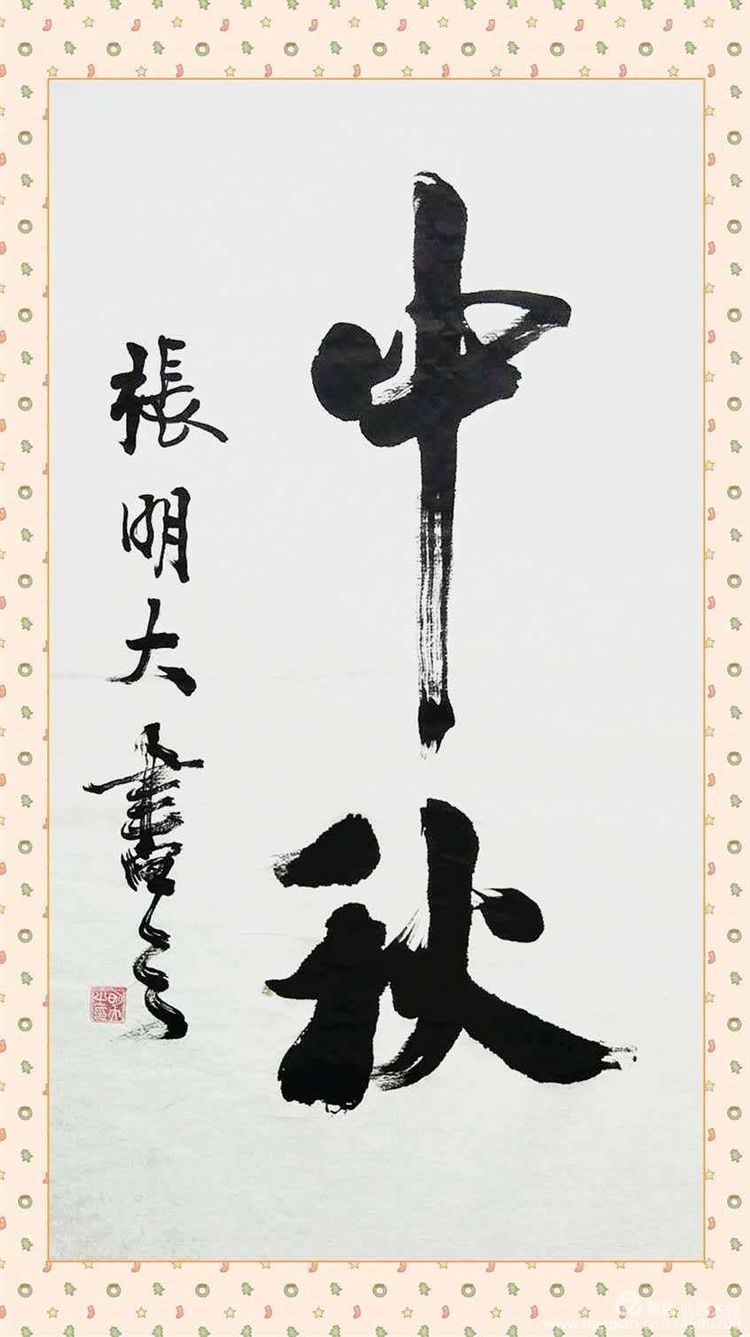 中秋
張明大書